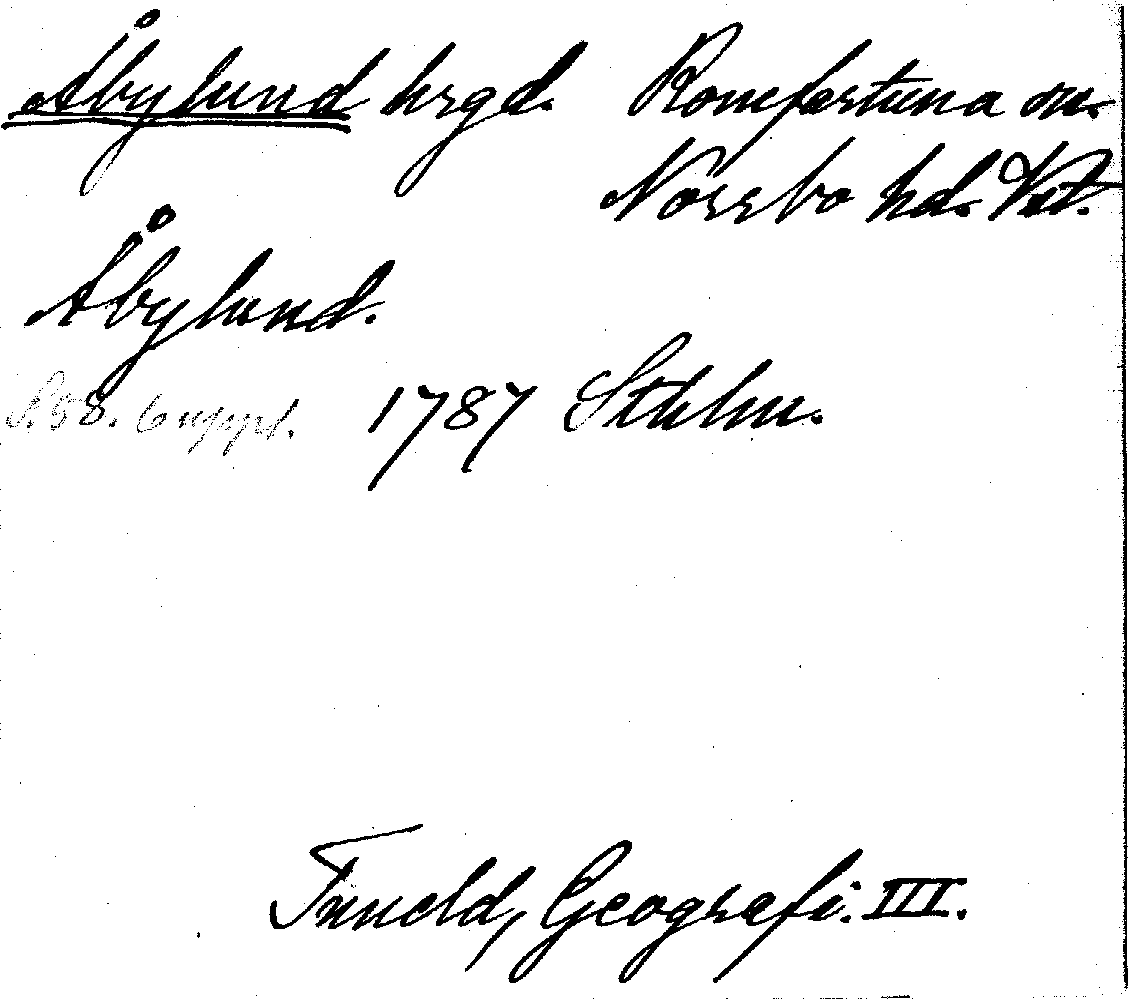 Åbylund hrgd. Romfartuna sn.
Norrbo hd. Vstl.
Åbylund.
S. 58. 6 uppl. 1787 Sthlm.
Tuneld, Geografi. III.